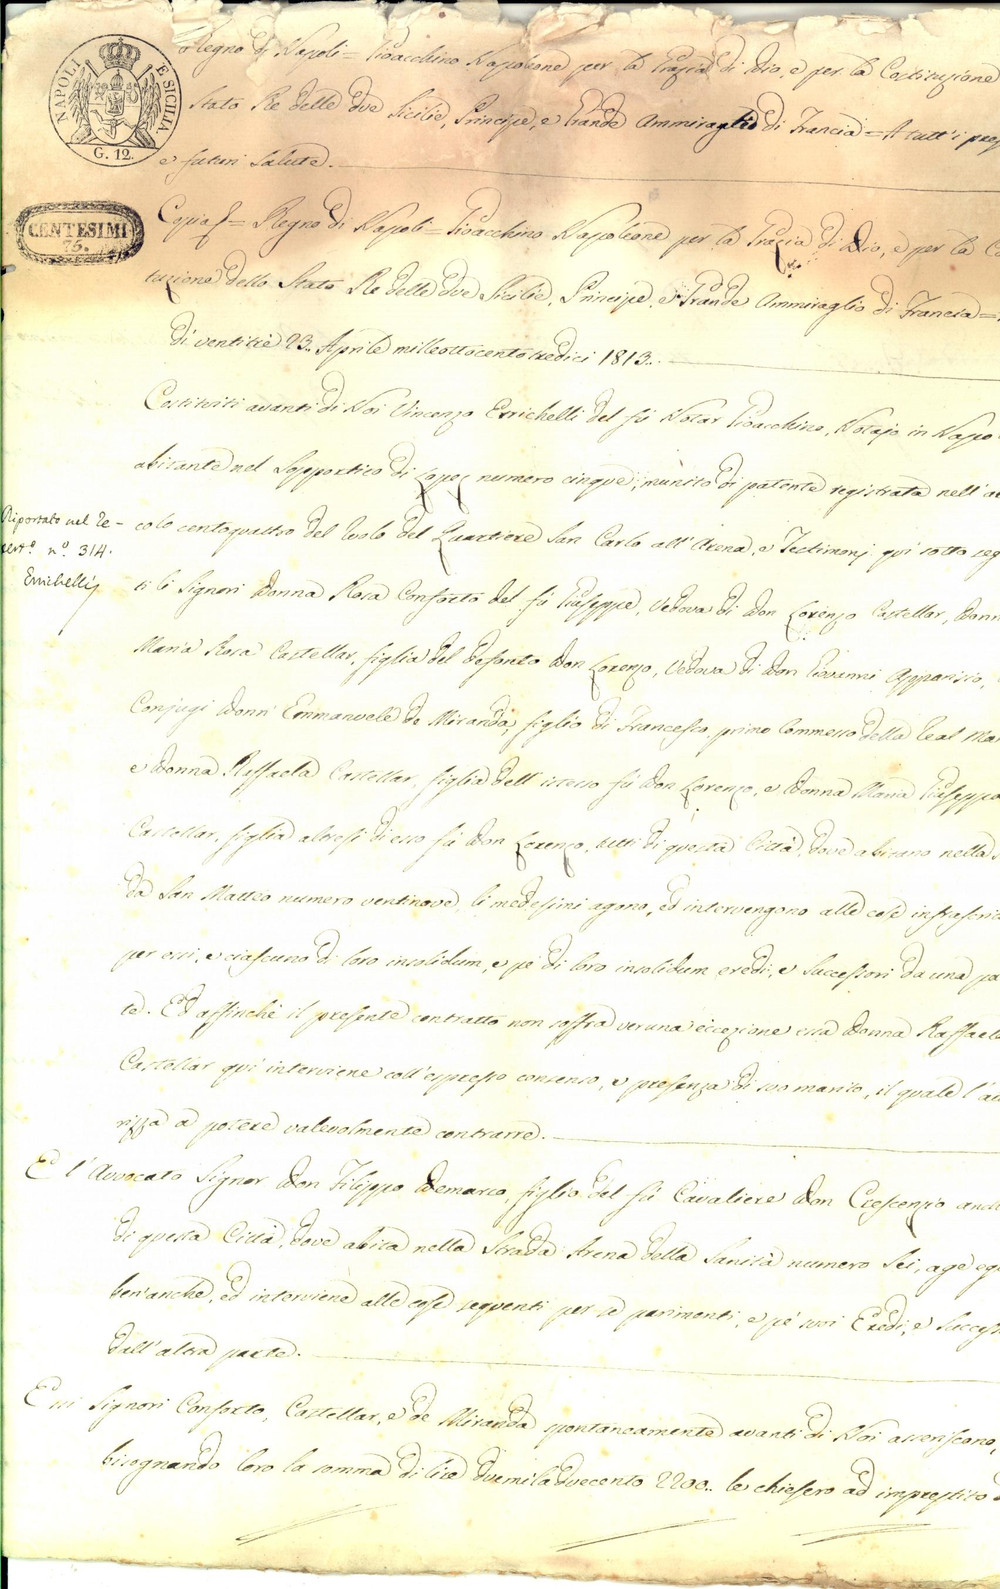 NAPOLI E SICILIA
G. 12.
CENTESIMI
75.
Regno di Napoli = Gioacchino Napoleone per la Grazia di Dio, e per la Costituzione
Stato Re delle due Sicilie, Principe, e Grande Ammiraglio di Francia = A tutt'i pres
e futuri Salute.
Copia = Regno di Napoli = Gioacchino Napoleone per la Grazia di Dio, e per la Co
tuzione dello Stato Re delle due Sicilie, Principe, e Grande Ammiraglio di Francia =
Dì ventitrè 23. Aprile milleottocentotredici 1813.
Costituiti avanti di Noi Vincenzo Errichelli del fù Notar Gioacchino, Notajo in Napo
abitante nel Supportico di Lopez numero cinque, munito di patente registrata nell'ar
colo centoquattro del Ruolo del Quartiere San Carlo all'Arena, e Testimonj qui sotto seg
Riportato nel Re-
pert.º n.º 314.
Errichelli
ti li Signori Donna Rosa Conforto del fù Giuseppe, Vedova di Don Lorenzo Castellar, Donn
Maria Rosa Castellar, figlia del defonto Don Lorenzo, Vedova di Don Giovanni Apparisio,
Conjugi Donn' Emmanuele de Miranda, figlio di Francesco, primo Commesso della Real Mar
e Donna Raffaela Castellar, figlia dell'istesso fù Don Lorenzo, e Donna Maria Giuseppa
Castellar, figlia altresì di esso fù Don Lorenzo, tutti di questa Città, dove abitano nella s
da San Matteo numero ventinove, li medesimi agono, ed intervengono alle cose infrascrit
per essi, e ciascuno di loro insolidum, e pè di loro insolidum eredi, e Successori da una pa
te. Ed affinchè il presente contratto non soffra veruna eccezione essa Donna Raffaela
Castellar qui interviene coll'espresso consenso, e presenza di suo marito, il quale l'au
rizza a potere valevolmente contrarre.
E l'Avvocato Signor Don Filippo Demarco, figlio del fù Cavaliere Don Crescenzio anch
di questa Città, dove abita nella Strada Arena della Sanità numero Sei, age eg
ben'anche, ed interviene alle cose seguenti per se parimenti, e pè suoi Eredi, e Success
dall'altra parte.
Essi Signori Conforto, Castellar, e de Miranda spontaneamente avanti di Noi asseriscono,
bisognando loro la somma di lire duemiladuecento 2200.. le chiesero ad imprestito d